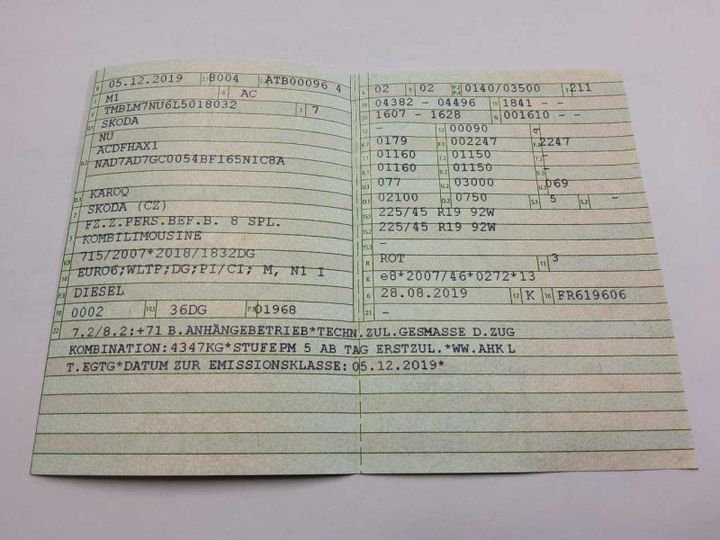 05.12.2019 8004 ATB00096 4
M1 AC
TMBLM7NU6L5018032 7
SKODA
NU
ACDFHAX1
NAD7AD7GC0054BF165N1C8A
KAROQ
SKODA (CZ)
FZ.Z.PERS.BEF.B. 8 SPL.
KOMBILIMOUSINE
715/2007*2018/1832DG
EURO6;WLTP;DG;PI/CI; M, N1 I
DIESEL
0002 36DG 01968
02 02 0140/03500 211
04382 - 04496 1841 - -
1607 - 1628 001610 - -
- 00090
0179 002247 2247
01160 01150 -
01160 01150 -
077 03000 069
02100 0750 5 -
225/45 R19 92W
225/45 R19 92W
-
ROT 3
e8*2007/46*0272*13
28.08.2019 K FR619606
-
7.2/8.2:+71 B.ANHÄNGEBETRIEB*TECHN.ZUL.GESMASSE D.ZUG
KOMBINATION:4347KG*STUFEPM 5 AB TAG ERSTZUL.*WW.AHK L
T.EGTG*DATUM ZUR EMISSIONSKLASSE:05.12.2019*